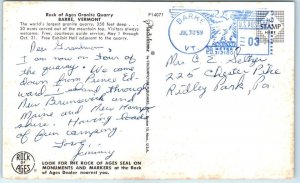 Rock of Ages Granite Quarry
BARRE, VERMONT
The world's largest granite quarry, 350 feet deep . . .
20 acres carved out of the mountain top. Visitors always
welcome. Free, courteous guide service, May 1 through
Oct. 31. Free Exhibit Hall adjacent to the quarry.
P14071
Dear Grandmom,
I am now on Tour of
the quarry. We came
down from Prince Ed-
ward Island, through
New Brunswick and
Maine and New Hamp-
shire. Having loads
of fun camping.
Love,
Jimmy
ROCK
OF
AGES
LOOK FOR THE ROCK OF AGES SEAL ON
MONUMENTS AND MARKERS at the Rock
of Ages Dealer nearest you.
BARRE
JUL 30 59
VT.
STAMP
03
Mrs C. E.
225 Chester Pike
Ridley Park Pa.